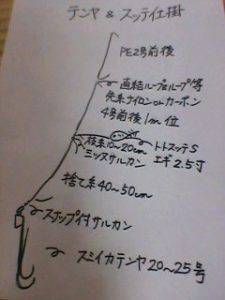 テンヤ & スッテ仕掛
PE2号前後
直結ループ&ループ等
先糸ナイロンorカーボン
4号前後1m位
枝糸10~20cm
ミニサルカン
トトスッテS
エギ2.5寸
捨て糸40~50cm
スナップ付サルカン
スミイカテンヤ20~25号